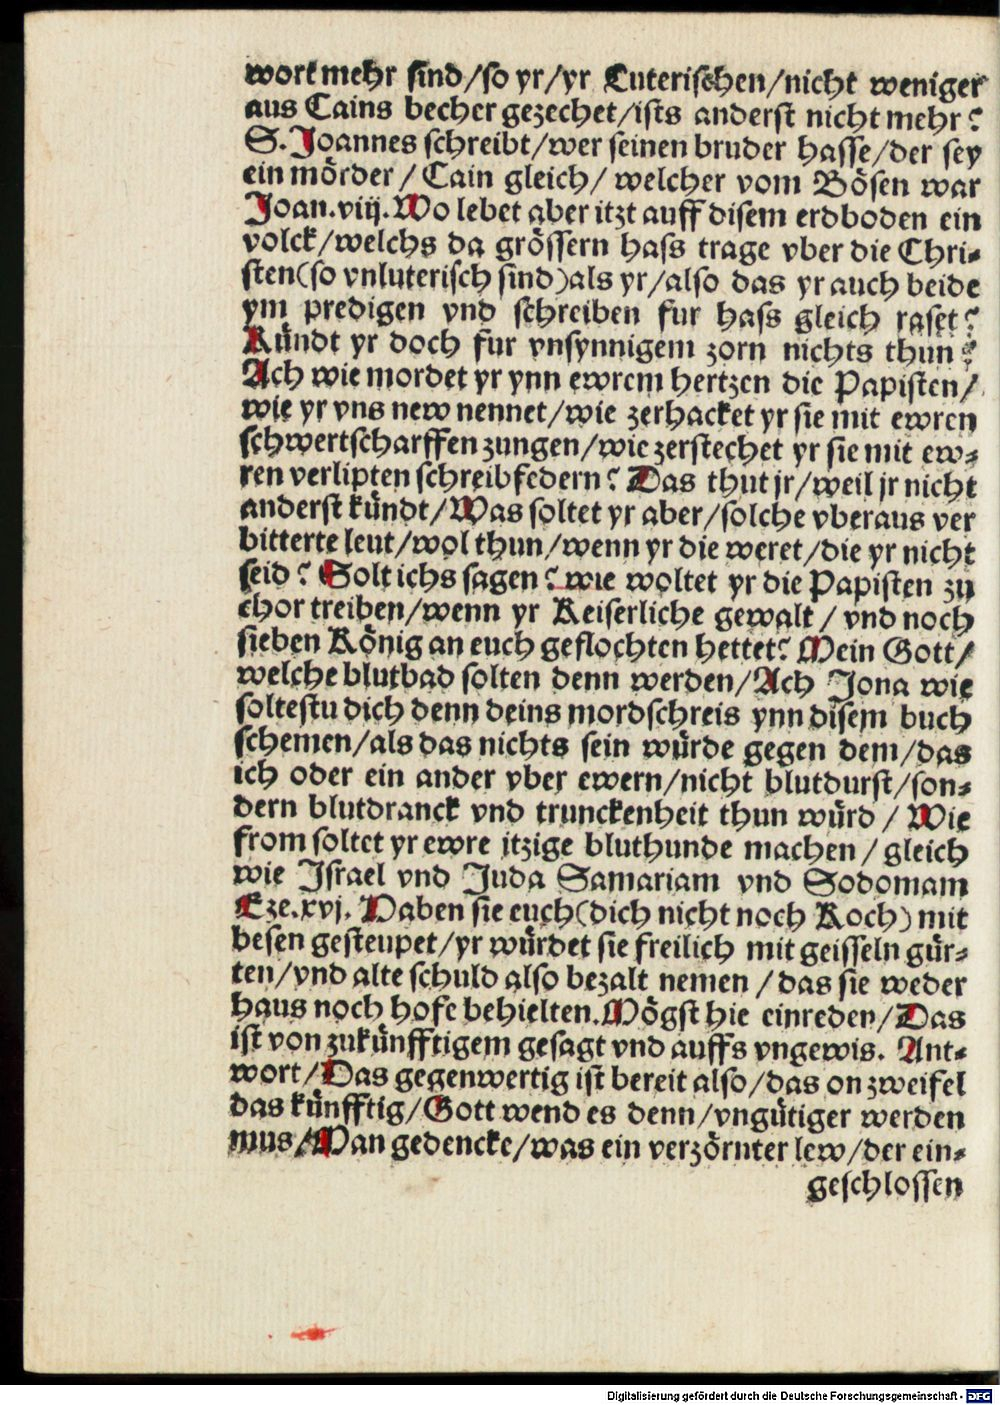 wort mehr sind/so yr/yr Luterischen/nicht weniger
aus Cains becher gezechet/ists anderst nicht mehr?
S. Joannes schreibt/wer seinen bruder hasse/der sey
ein mörder/ Cain gleich/ welcher vom Bösen war
Joan.viij. Wo lebet aber itzt auff disem erdboden ein
volck/welchs da grössern hass trage vber die Chri-
sten(so vnluterisch sind)als yr/also das yr auch beide
ym predigen vnd schreiben fur hass gleich raset?
Kündt yr doch fur vnsynnigem zorn nichts thun?
Ach wie mordet yr ynn ewrem hertzen die Papisten/
wie yr vns new nennet/wie zerhacket yr sie mit ewren
schwertscharffen zungen/wie zerstechet yr sie mit ew-
ren verlipten schreibfedern? Das thut jr/weil jr nicht
anderst kündt/Was soltet yr aber/solche vberaus ver
bitterte leut/wol thun/wenn yr die weret/die yr nicht
seid? Solt ichs sagen? wie woltet yr die Papisten zu
chor treiben/wenn yr Keiserliche gewalt/ vnd noch
sieben König an euch geflochten hettet? Mein Gott/
welche blutbad solten denn werden/Ach Jona wie
soltestu dich denn deins mordschreis ynn disem buch
schemen/als das nichts sein würde gegen dem/das
ich oder ein ander vber ewern/nicht blutdurst/son-
dern blutdranck vnd trunckenheit thun würd/ Wie
from soltet yr ewre itzige bluthunde machen/ gleich
wie Israel vnd Juda Samariam vnd Sodomam
Eze.xvj. Haben sie euch(dich nicht noch Koch) mit
besen gesteupet/yr würdet sie freilich mit geisseln gür-
ten/vnd alte schuld also bezalt nemen/das sie weder
haus noch hofe behielten. Mögst hie einreden/Das
ist von zukünfftigem gesagt vnd auffs vngewis. Ant-
wort/Das gegenwertig ist bereit also/das on zweifel
das künfftig/Gott wend es denn/vngütiger werden
mus/Man gedencke/was ein verzörnter lew/der ein-
geschlossen
Digitalisierung gefördert durch die Deutsche Forschungsgemeinschaft - DFG